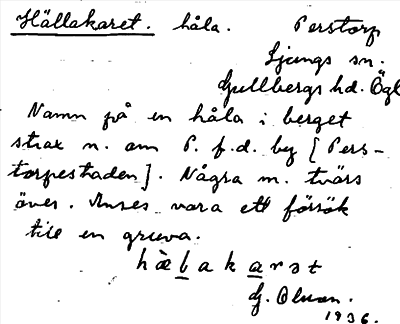 Hällakaret. håla. Perstorp
Ljungs sn.
Gullbergs hd. Ögl
Namn på en håla i berget
strax n. om P. f.d. by [Pers-
torpestaden]. Några m. tvärs
över. Anses vara ett försök
till en gruva.
hä̀lakarət
G. Olsson.
1936.